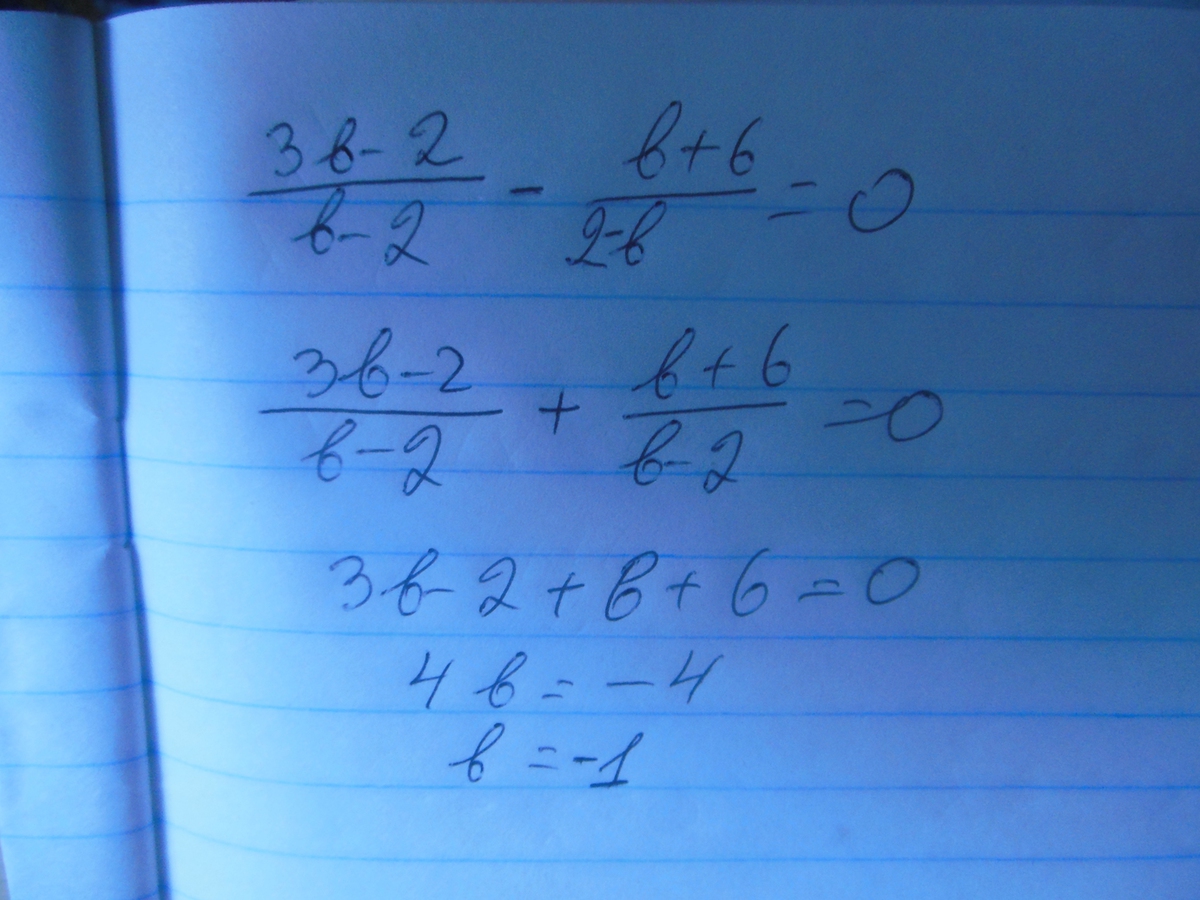 (3b-2)/(b-2) - (b+6)/(2-b) = 0
(3b-2)/(b-2) + (b+6)/(b-2) = 0
3b-2+b+6=0
4b=-4
b=-1